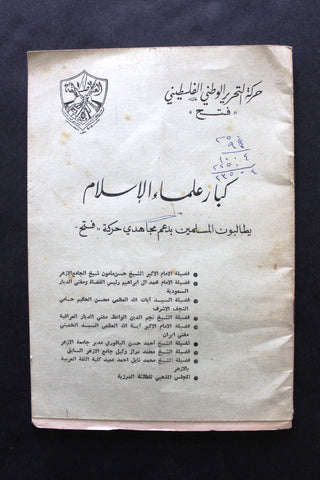 حركة التحرير الوطني الفلسطيني
« فتح »
كبار علماء الإسلام
يطالبون المسلمين بدعم مجاهدي حركة « فتح »
● فضيلة الامام الاكبر الشيخ حسن مامون شيخ الجامع الازهر
● فضيلة الامام محمد ال ابراهيم رئيس القضاة ومفتي الديار
السعودية
● فضيلة السيد آيات الله العظمى محسن الحكيم حامي
النجف الاشرف
● فضيلة الشيخ نجم الدين الواعظ مفتي الديار العراقية
● فضيلة الامام الاكبر آية الله العظمى السيد الخميني
مفتي ايران
● فضيلة الشيخ احمد حسن الباقوري مدير جامعة الازهر
● فضيلة الشيخ محمد دراز وكيل جامع الازهر السابق
● فضيلة الشيخ محمد نايل احمد عميد كلية اللغة العربية
بالازهر
● المجلس المذهبي للطائفة الدرزية